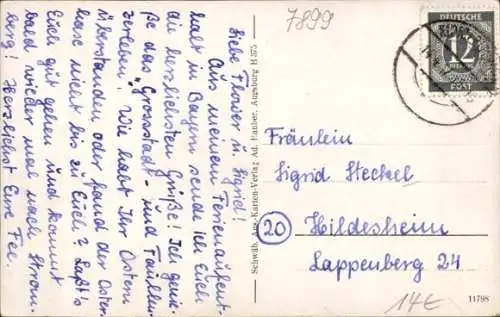 7899
Liebe Flower u. Sigrid!
Aus meinem Ferienaufent-
halt in Bayern sende ich Euch
die herzlichsten Grüße! Ich genie-
ße das „Grossstadt- und Faulen-
zerleben". Wie habt Ihr Ostern
überstanden oder fand der Oster-
hase nicht bis zu Euch? Laßt's
Euch gut gehen und kommt
bald wieder mal nach Strom-
berg! Herzlichst Eure Fee.
Schwäb. Ans.-Karten-Verlag Ad. Hauber, Augsburg H 375
DEUTSCHE
12
PFENNIG
POST
Fräulein
Sigrid Steckel
20
Hildesheim
Lappenberg 24
11798
14€